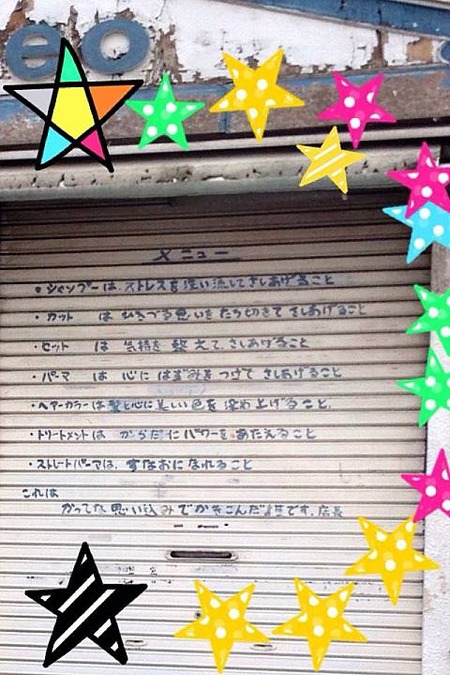 eo
メニュー
・シャンプーは、ストレスを洗い流してさしあげること
・カット は ひきづる思いをたち切きてさしあげること
・セット は 気持を整えてさしあげること
・パーマ は 心にはずみをつけてさしあげること
・ヘアーカラーは髪と心に美しい色を染め上げること。
・トリートメントは からだにパワーをあたえること
・ストレートパーマは、すなおになれること
これは
かってな思い込みでかきこんだ です。店長